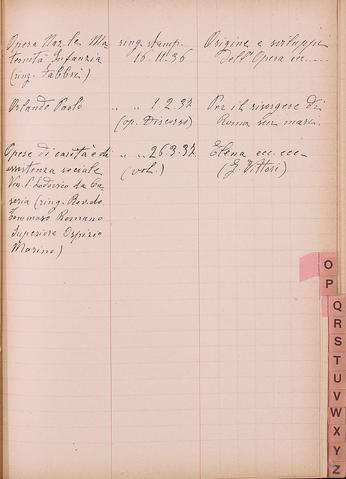 Opera Naz. le Ma
ternità Infanzia
(ring. Fabbri)
ring. stamp.
16.11.36
Origine e sviluppi
dell'Opera ec
Orlando Paolo
" " 1.2.37
(op. Discorso)
Per il risorgere di
Roma
Opere di carità e di
assistenza sociale
Ven. Lodovico da Ca
soria (ring. Rev.do
Tommaso Romano
Superiore Ospizio
Marino)
" " 26.3.37
(vol.)
Elena ec. ec.
(G. Vittori)
O
P
Q
R
S
T
U
V
W
X
Y
Z